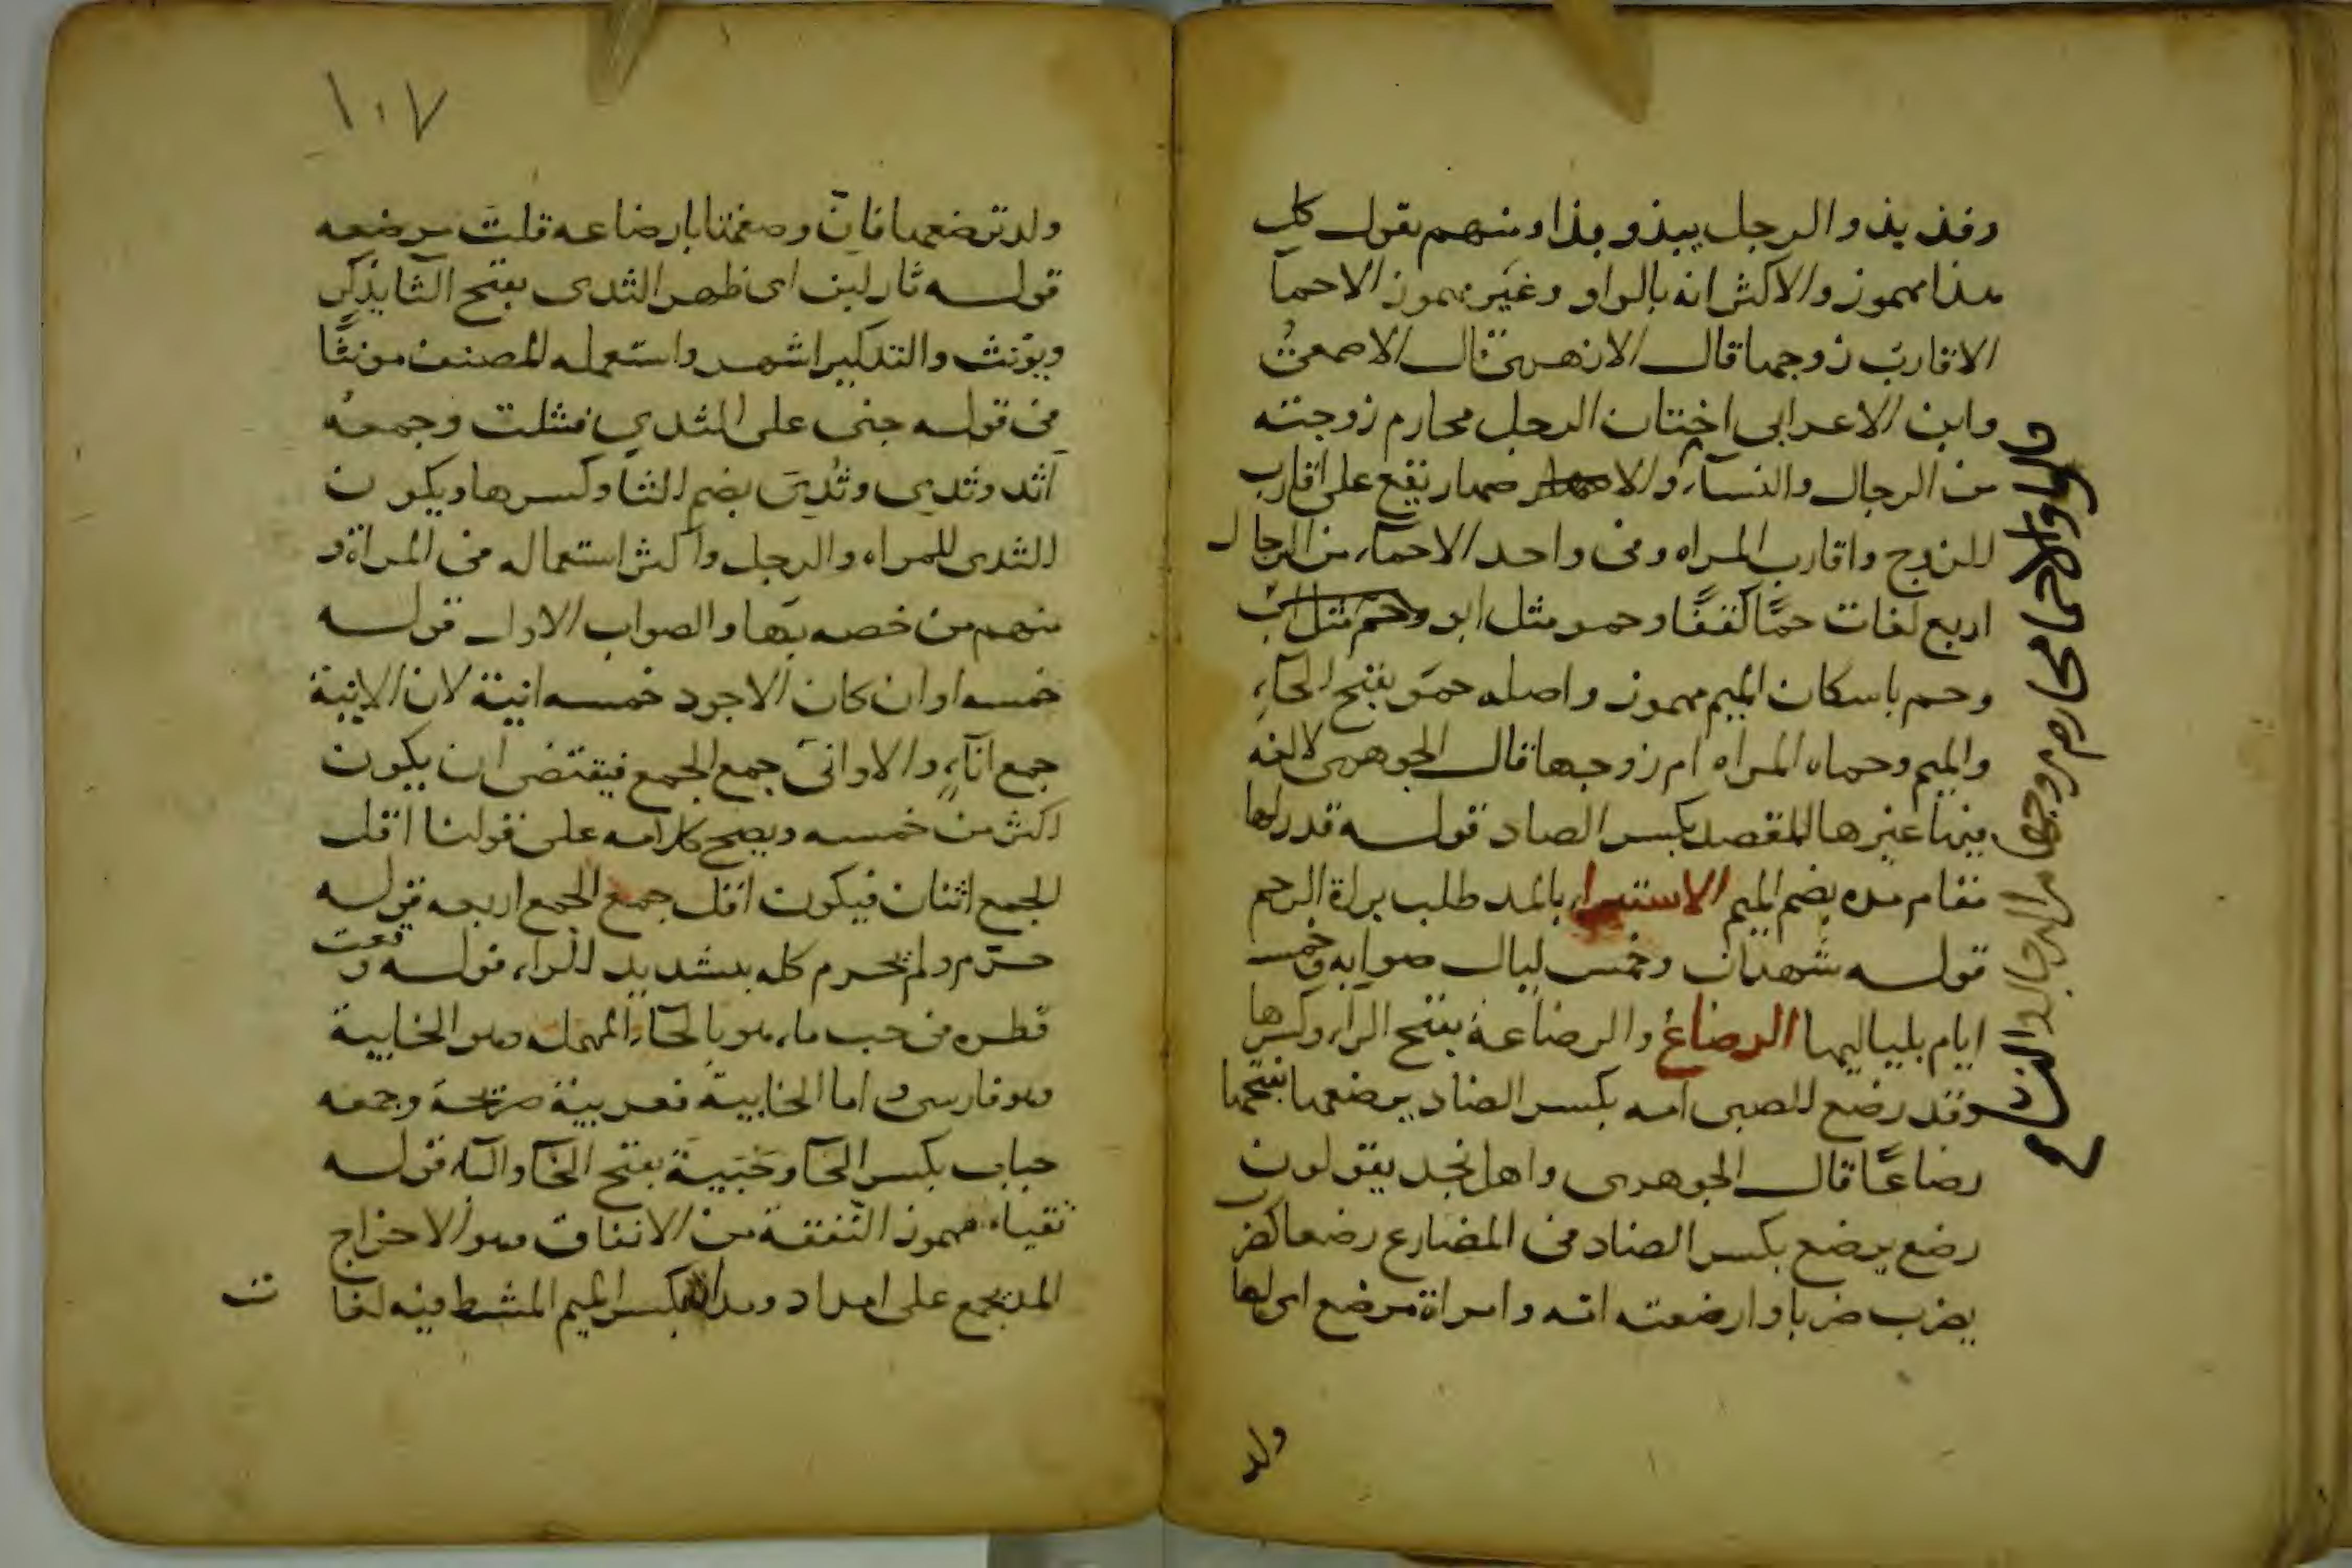 وقد يذو الرجل يبذو بذا ومنهم يقول كل
هذا مهموز والاكثر انه بالواو وغير مهموز الاحما
الاقارب زوجها قال الازهري قال الاصمعي
وابن الاعرابي اختتان الرجل محارم زوجته
من الرجال والنساء والاصهار يقع على اقارب
الزوج واقارب المراه وفي واحد الاحماء من الرجال
اربع لغات حمًا كقفًا وحمو مثل ابو وحم مثل اب
وحمء باسكان الميم مهموز واصله حمو بفتح الحاء
والميم وحماه المراه ام زوجها قال الجوهري لا لغه
فيها غيرها المقصد بكسر الصاد قوله قدرلها
مقام مده بضم الميم الاستبراء بالمد طلب براة الرحم
قوله شهران وخمس ليال صوابه وخمسه
ايام بلياليها الرضاع والرضاعة بفتح الراء وكسرها
وقد رضع الصبي امه بكسر الضاد يرضعها بفتحها
رضاعًا قال الجوهري واهل نجد يقولون
رضع يرضع بكسر الضاد في المضارع رضعا كضرب
يضرب ضربا وارضعته امه وامراة مرضع اي لها
ولد
والاحما محارم زوجها من الرجال والنساء
١٠٧
ولد ترضعها فان وصفتها بارضاعه قلت مرضعه
قوله ثار لبن اي ظهر الثدي بفتح الثا يذكر
ويونث والتذكير اشهر واستعمله المصنف مونثًا
في قوله جنى على الثدي فشلت وجمعه
اثد وثدي وثدي بضم الثا وكسرها ويكون
الثدي للمراه والرجل واكثر استعماله في المراة و
منهم من خصه بها والصواب الاول قوله
خمسه اوان كان الاجود خمسه انية لان الانية
جمع اناء والاواني جمع الجمع فيقتضي ان يكون
اكثر من خمسه ويصح كلامه على قولنا اقل
الجمع اثنان فيكون اقل جمع الجمع اربعه قوله
حرّم ولم يحرم كله بتشديد الراء قوله وقعت
قطره في حب ماء هو بالحاء المهمله وهو الخابية
وهو فارسي واما الخابية فعربية صريحة وجمعه
حباب بكسر الحا وحببة بفتح الحا والبا قوله
تقياء مهموز النفقة من الانفاق وهو الاخراج
المد يجمع على امداد ومداد بكسر الميم المشط فيه لغا
ت